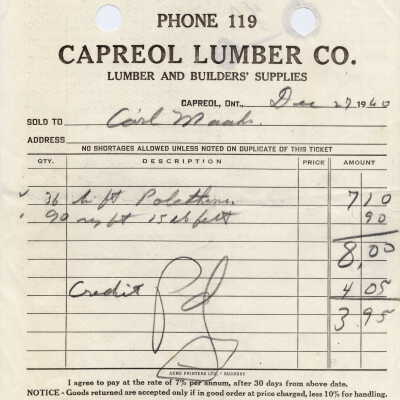 PHONE 119
CAPREOL LUMBER CO.
LUMBER AND BUILDERS' SUPPLIES
CAPREOL, ONT., Dec 27 1960
SOLD TO Carl Maahs.
ADDRESS
NO SHORTAGES ALLOWED UNLESS NOTED ON DUPLICATE OF THIS TICKET
QTY. DESCRIPTION PRICE AMOUNT
36 ft Polathene 7 10
90 sq ft 15 lb felt 90
8,00
Credit 4 05
3.95
Pd
ACME PRINTERS LTD. - SUDBURY
I agree to pay at the rate of 7% per annum, after 30 days from above date.
NOTICE - Goods returned are accepted only if in good order at price charged, less 10% for handling.